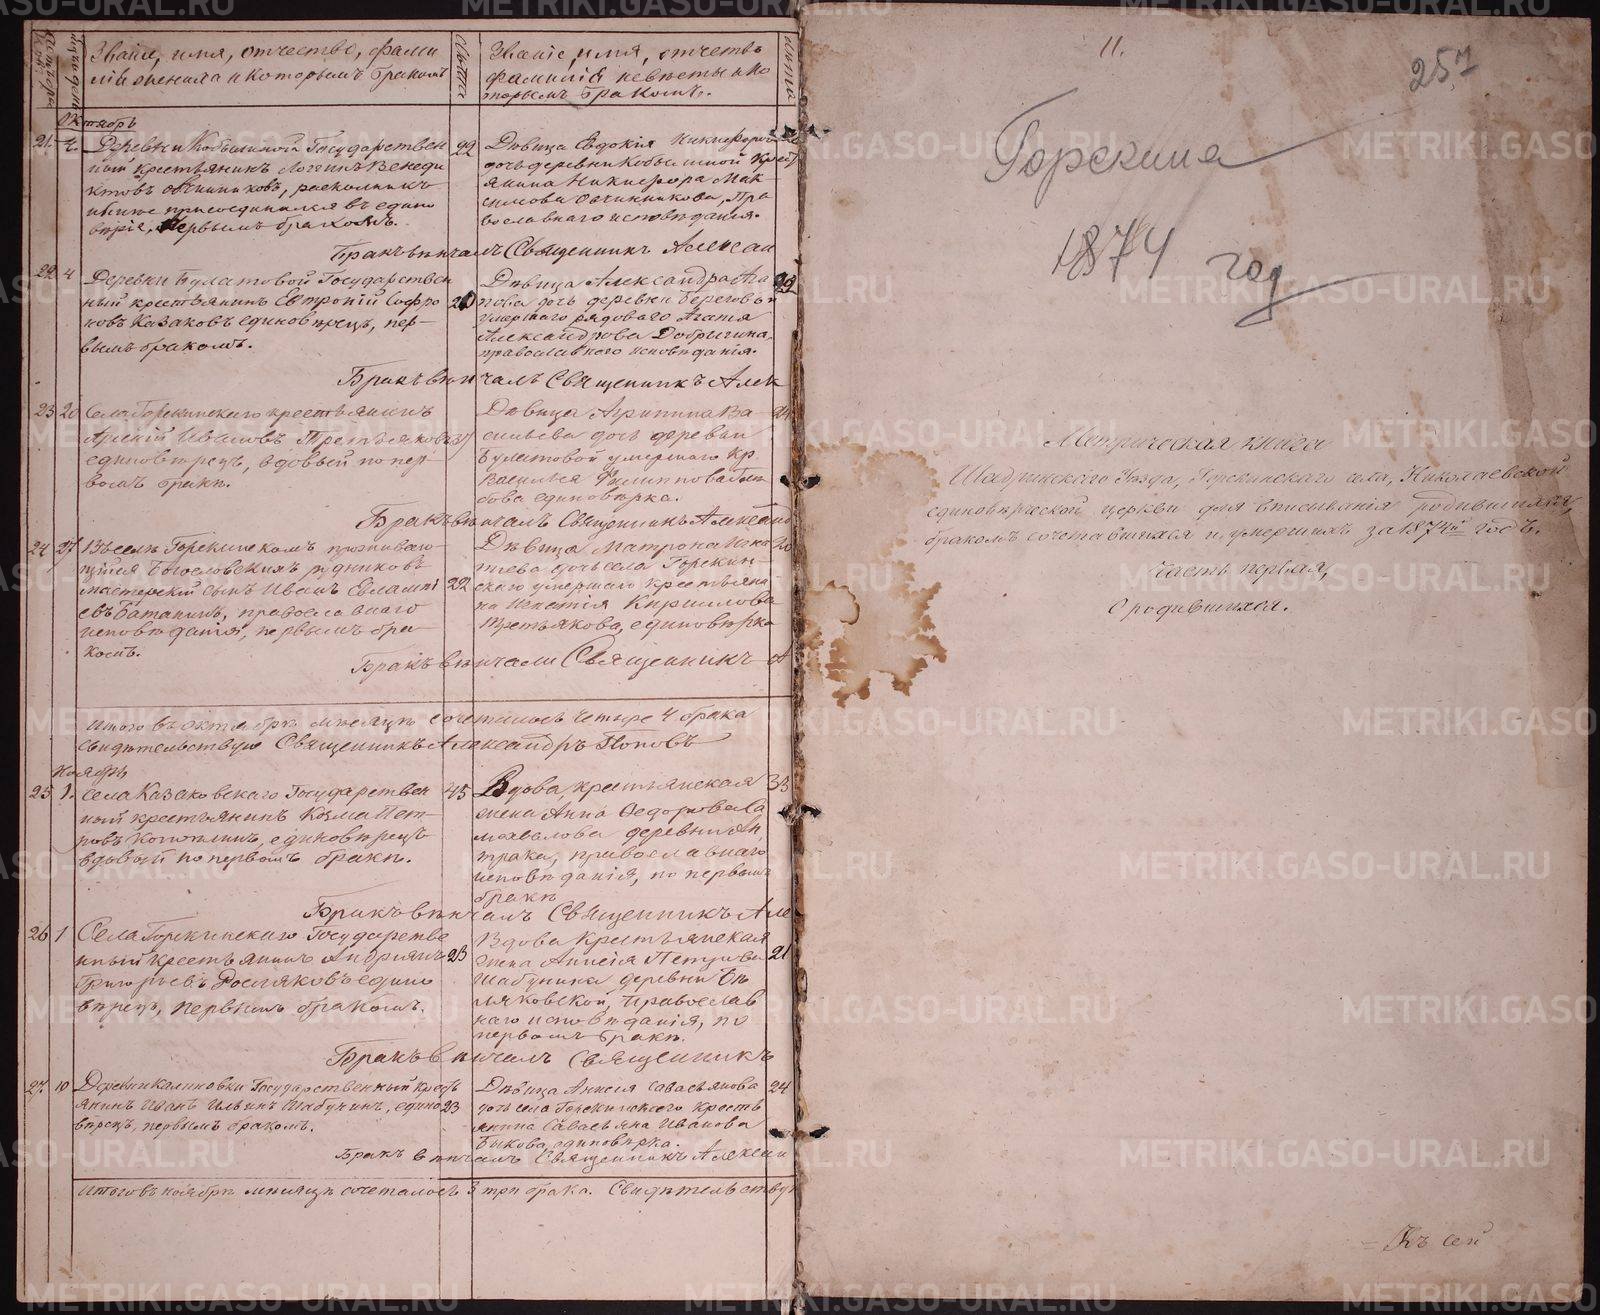 Званіе, имя, отчество, фами
лія жениха и которымъ бракомъ
Лѣта
Званіе, имя, отчетвъ
фамилія невѣсты и ко
торымъ бракомъ.
Лѣта
Октябрь
21.
Деревни Кобылиной Государствен
ный крестьянинъ Логинъ Венеди
ктовъ Овчинниковъ, раскольникъ
нынѣ присоединился въ едино
вѣріе, первымъ бракомъ.
22
Дѣвица Евдокія Никифорова
дочь деревни Кобылиной крест
янина Никифора Мак
симова Овчинникова, Пра
вославнаго исповѣданія.
Бракъ вѣнчалъ Священникъ Алексан
22 4
Деревни Булатовой Государствен
ный крестьянинъ Евтропій Софро
новъ Казаковъ единовѣрецъ, пер-
вымъ бракомъ.
20
Дѣвица Александра Ага
пова дочь деревни Береговой
умершаго рядоваго Агапія
Александрова Добрыгина,
православнаго исповѣданія.
29
Бракъ вѣнчалъ Священникъ Алек
23 20
Села Горскинскаго крестьянинъ
Арсеній Ивановъ Третьяковъ
единовѣрецъ, вдовый по пер-
вомъ бракѣ.
Дѣвица Агрипина Ва-
сильева дочь деревни
Булатовой умершаго кр.
Василья Филиппова
единовѣрка.
Бракъ вѣнчалъ Священникъ Александ
24 27
Въ селѣ Горскинскомъ проживаю-
щійся Богословскихъ рудниковъ
мастерскій сынъ Иванъ Евлампі
евъ Батанинъ, православнаго
исповѣданія, первымъ бра-
комъ.
22
Дѣвица Матрона Игна
тьева дочь села Горскин-
скаго умершаго крестьяни
на Игнатія Кириллова
Третьякова, единовѣрка
20
Бракъ вѣнчалъ Священникъ А
Итого въ октябрѣ мѣсяцѣ сочеталось четыре 4 брака
свидѣтельствую Священникъ Александръ Поповъ
Ноябрь
25 1.
Села Казаковскаго Государствен
ный крестьянинъ Козма Пет
ровъ единовѣрецъ
вдовый по первомъ бракѣ.
45
Вдова, крестьянская
жена Анна Ѳедорова Са
мохвалова деревни Ан
трака, православнаго
исповѣданія, по первомъ
бракѣ
33
Бракъ вѣнчалъ Священникъ Але
26 1
Села Горскинскаго Государстве
нный крестьянинъ Андріянъ
Григорьевъ Росляковъ едино
вѣрецъ, первымъ бракомъ.
23
Вдова Крестьянская
жена Анисія Петрова
Шабунина деревни Бѣ
ляковской, Православ
наго исповѣданія, по
первомъ бракѣ.
21
Бракъ вѣнчалъ Священникъ
27. 10
Деревни Калиновки Государственный крест
янинъ Иванъ Ильинъ Шабунинъ, едино
вѣрецъ, первымъ бракомъ.
23
Дѣвица Анисія Савасьянова
дочь села Горскинскаго крестья
янина Савасьяна Иванова
Быкова, единовѣрка.
24
Бракъ вѣнчалъ Священникъ Алексан
Итого въ ноябрѣ мѣсяцѣ сочеталось 3 три брака. Свидѣтельствую
11.
257
Горскина
1874 год
Метрическая книга
Шадринскаго Уѣзда, Горскинскаго села, Николаевской
единовѣрческой церкви для вписыванія родившихся,
бракомъ сочетавшихся и умершихъ за 1874й годъ.
Часть первая,
О родившихся.
Къ сей
METRIKI.GASO-URAL.RU